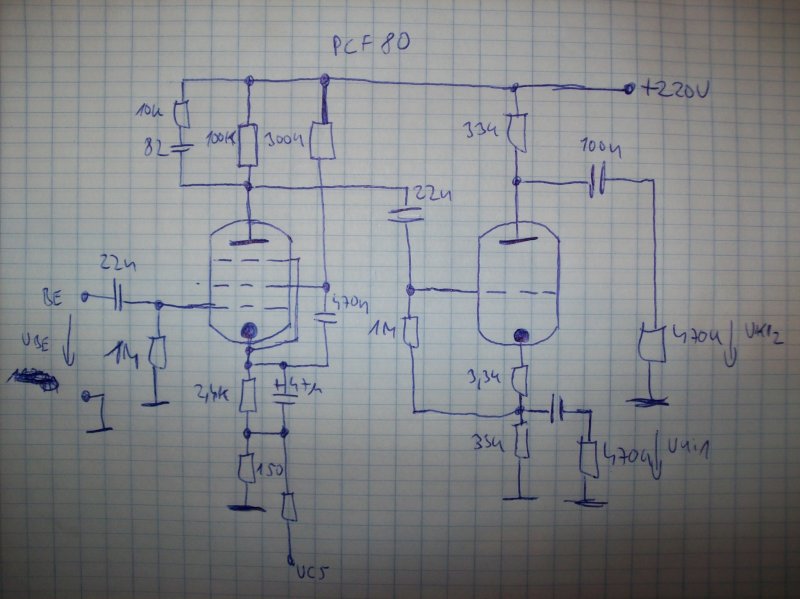 PCF 80
+220V
10k
82
100K
300k
33k
100n
22n
22n
BE
UBE
1M
470n
1M
2,4K
+ 47µ
150
UCS
3,3k
33k
470k
Uki2
470k
Uki1